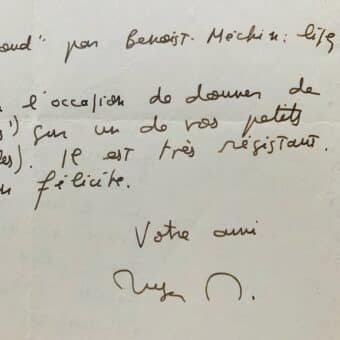 ond" par Benoist-Méchin: lisez
l'occasion de donner de
s") sur un de vos petits
les). Il est très résistant.
félicite.
Votre ami